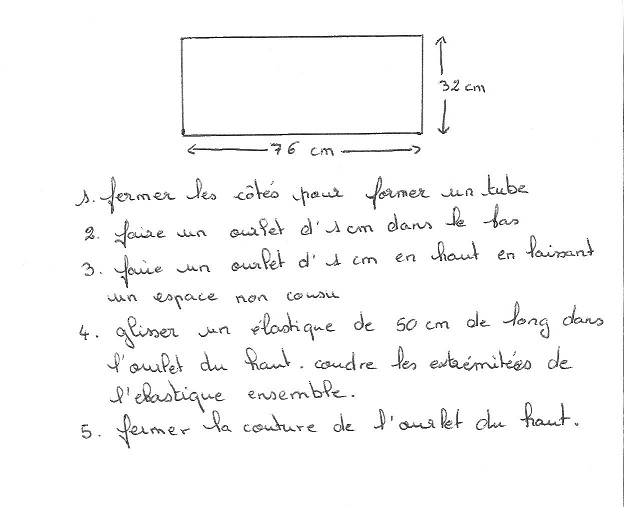 32 cm
76 cm
1. fermer les côtés pour former un tube
2. faire un ourlet d'1 cm dans le bas
3. faire un ourlet d'1 cm en haut en laissant
un espace non cousu
4. glisser un élastique de 50 cm de long dans
l'ourlet du haut. coudre les extrémitées de
l'elastique ensemble.
5. fermer la couture de l'ourlet du haut.